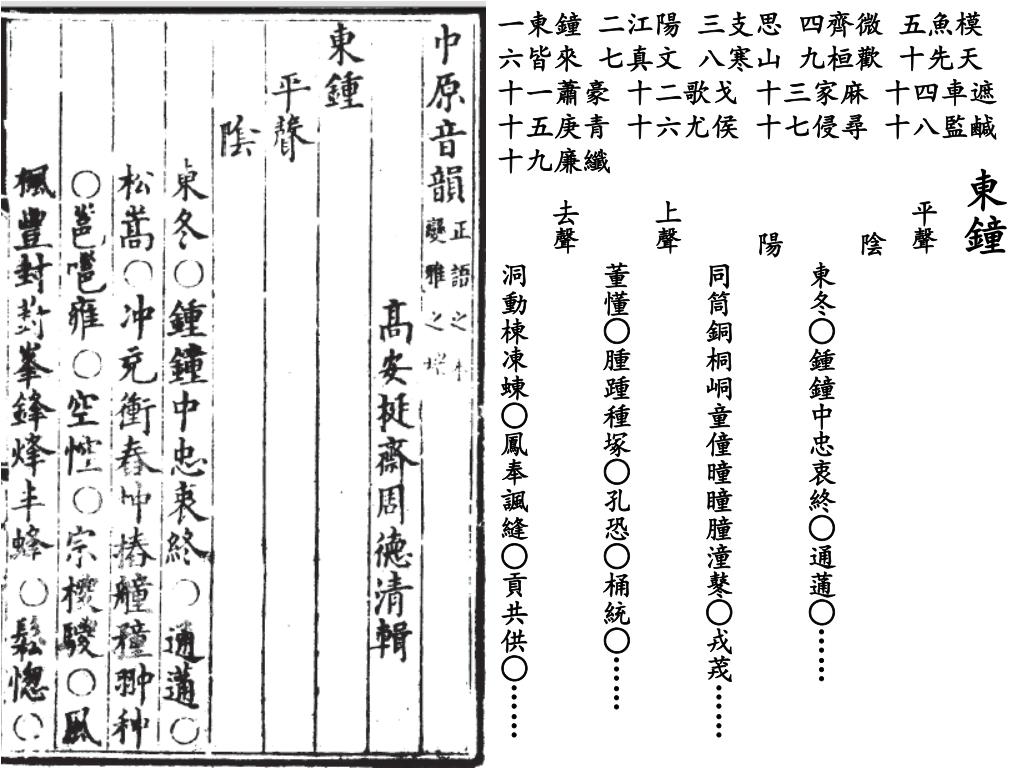 中原音韻 正語之本 變雅之端
高安挺齋周德清輯
東鍾
平聲
陰
東冬〇鍾鐘中忠衷終〇通蓪〇
松嵩〇冲充衝舂忡摏艟穜翀种
〇邕噰雍〇空悾〇宗椶騣〇風
楓豐封葑峯鋒烽丰蜂〇鬆惚〇
一東鐘 二江陽 三支思 四齊微 五魚模
六皆來 七真文 八寒山 九桓歡 十先天
十一蕭豪 十二歌戈 十三家麻 十四車遮
十五庚青 十六尤侯 十七侵尋 十八監鹹
十九廉纖
東鐘
平聲
陰
東冬〇鍾鐘中忠衷終〇通蓪〇……
陽
同筒銅桐峒童僮曈瞳朣潼鼕〇戎茙……
上聲
董懂〇腫踵種塚〇孔恐〇桶統〇……
去聲
洞動棟凍蝀〇鳳奉諷縫〇貢共供〇……